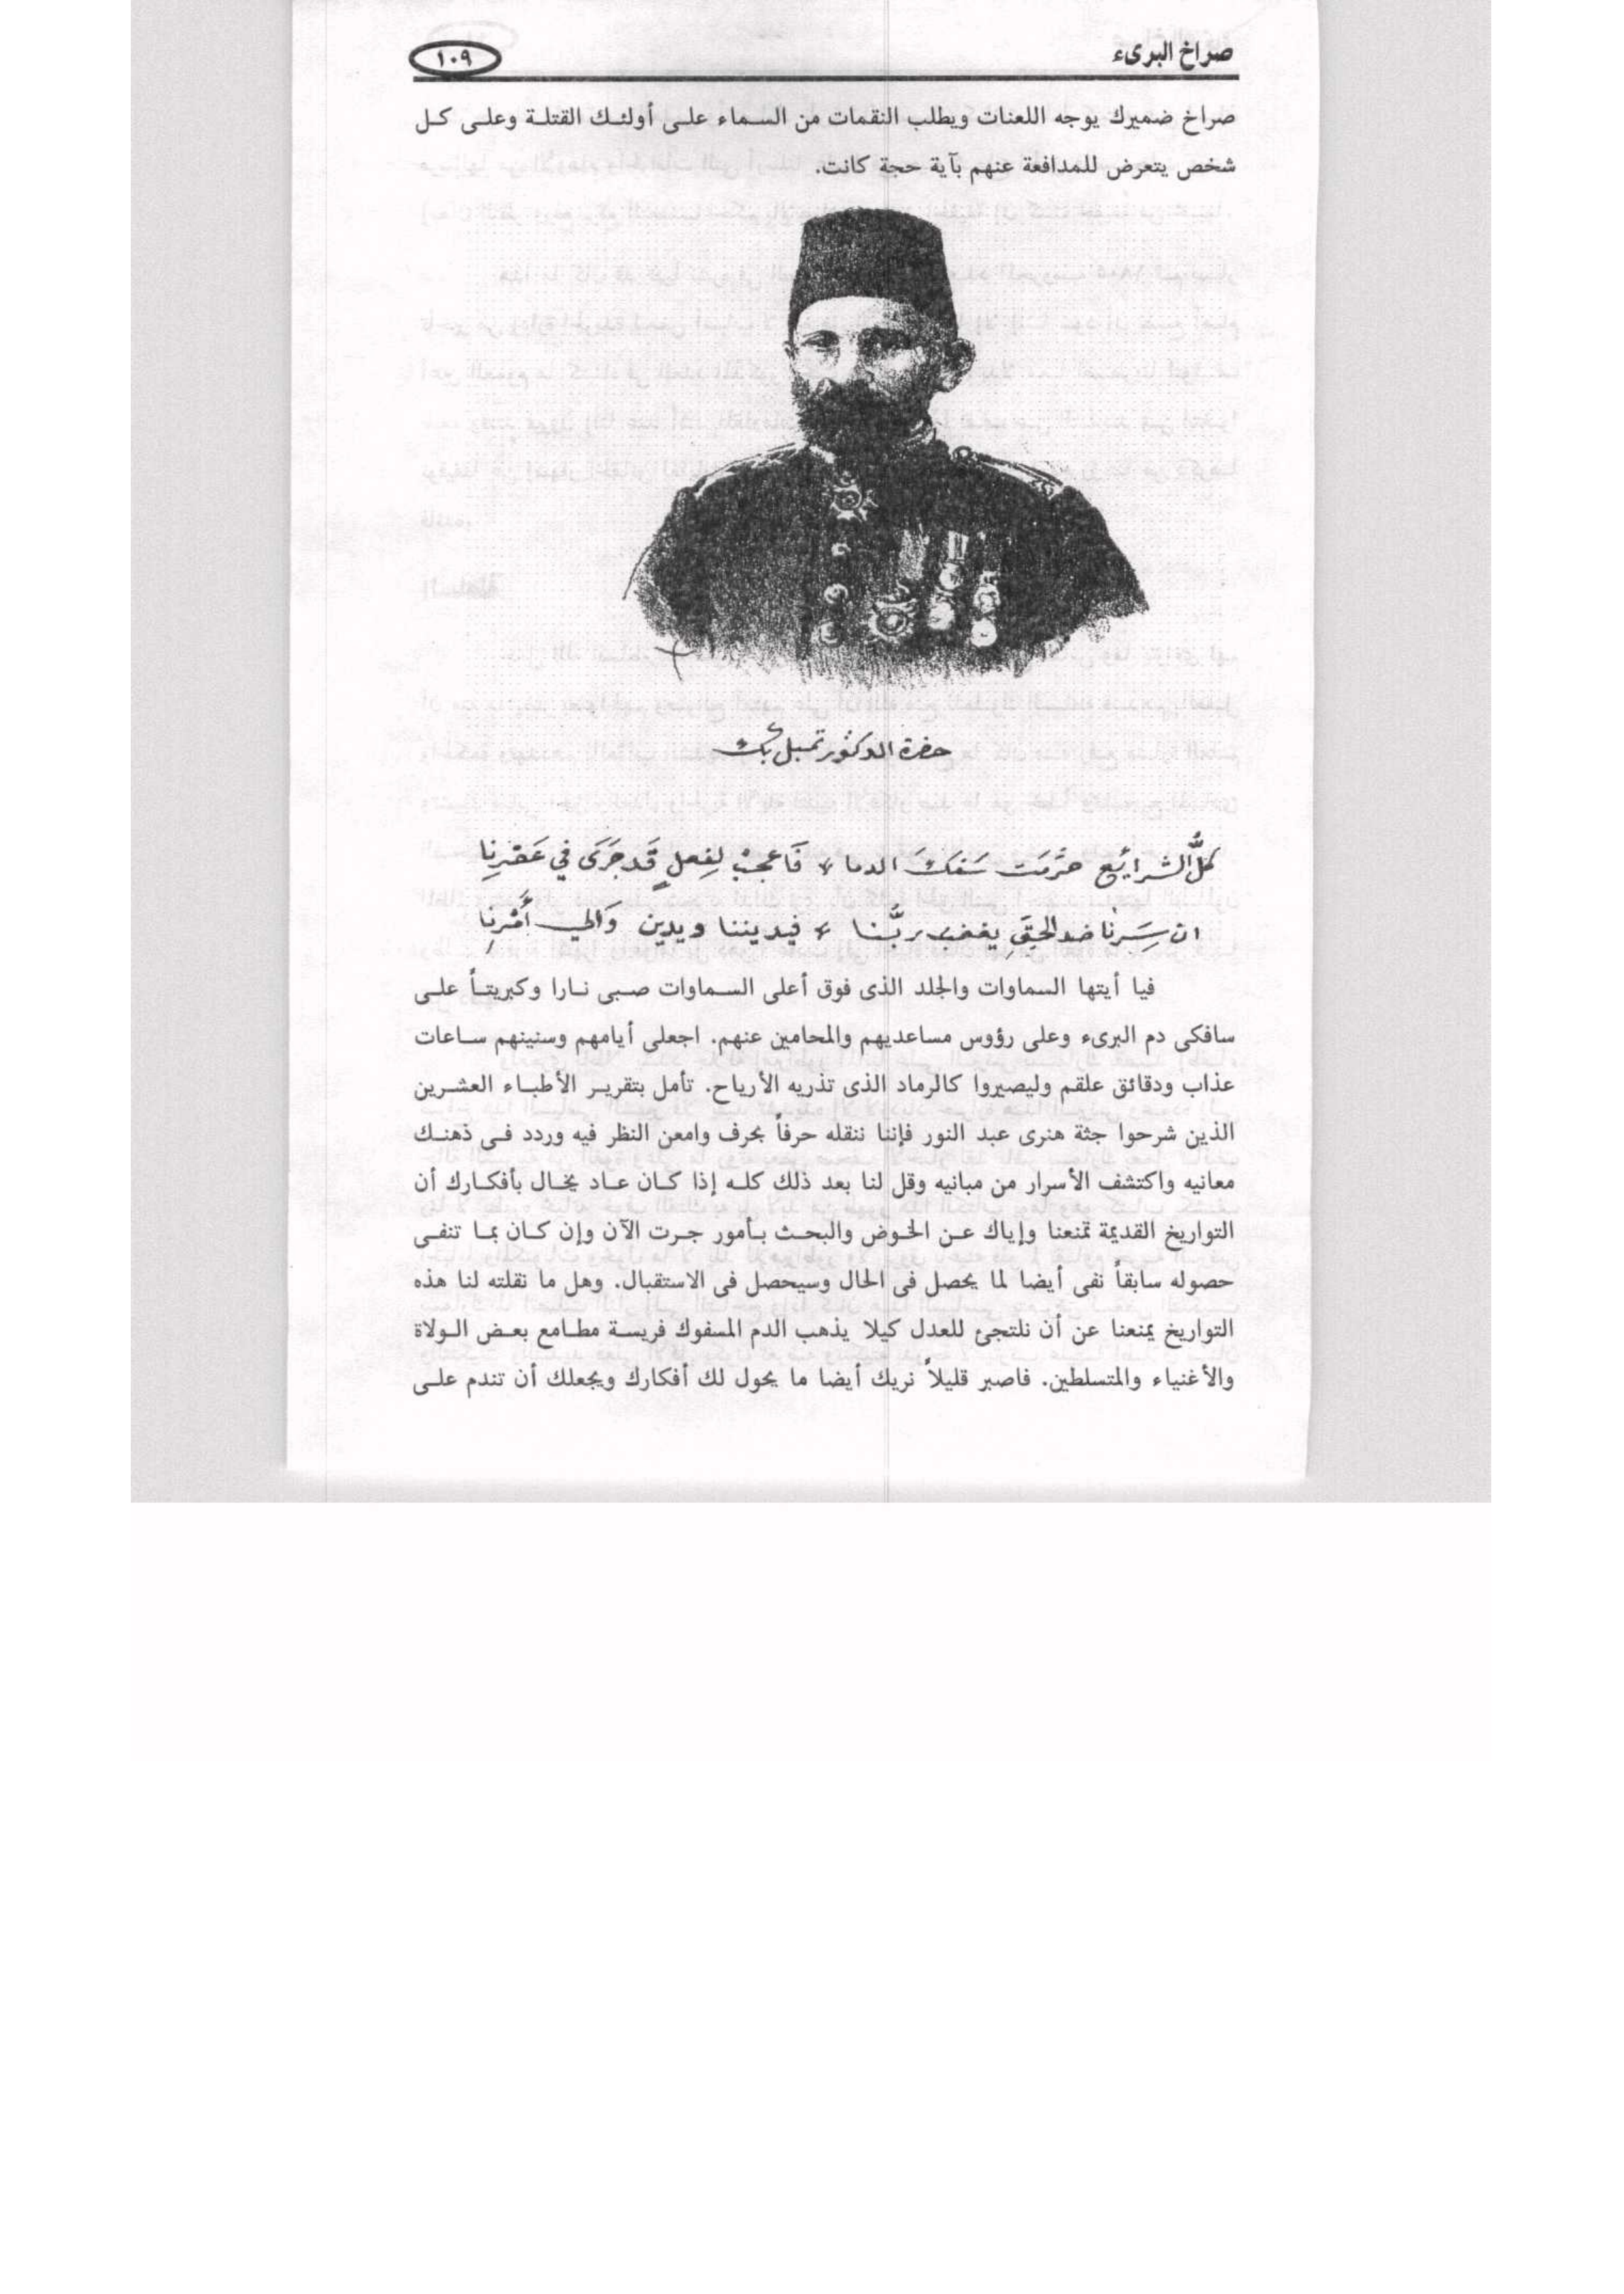 صراخ البرىء
١٠٩
صراخ ضميرك يوجه اللعنات ويطلب النقمات من السماء على أولئك القتلة وعلى كل
شخص يتعرض للمدافعة عنهم بآية حجة كانت.
حضرة الدكتور تمبل بك
كلُّ الشرايع حرَّمَت سَفكَ الدما * فَاعجبْ لِفعلٍ قَد جَرَى في عَصْرِنا
ان سِرنا ضد الحقِ يغضب ربُّنا * فيديننا ويدين وَالي أَمْرِنا
فيا أيتها السماوات والجلد الذى فوق أعلى السماوات صبى نارا وكبريتاً على
سافكى دم البرىء وعلى رؤوس مساعديهم والمحامين عنهم. اجعلى أيامهم وسنينهم ساعات
عذاب ودقائق علقم وليصيروا كالرماد الذى تذريه الأرياح. تأمل بتقرير الأطباء العشرين
الذين شرحوا جثة هنرى عبد النور فإننا ننقله حرفاً بحرف وامعن النظر فيه وردد فى ذهنك
معانيه واكتشف الأسرار من مبانيه وقل لنا بعد ذلك كله إذا كان عاد يخال بأفكارك أن
التواريخ القديمة تمنعنا وإياك عن الخوض والبحث بأمور جرت الآن وإن كان بما تنفى
حصوله سابقاً نفى أيضا لما يحصل فى الحال وسيحصل فى الاستقبال. وهل ما نقلته لنا هذه
التواريخ يمنعنا عن أن نلتجئ للعدل كيلا يذهب الدم المسفوك فريسة مطامع بعض الولاة
والأغنياء والمتسلطين. فاصبر قليلاً نريك أيضا ما يحول لك أفكارك ويجعلك أن تندم على